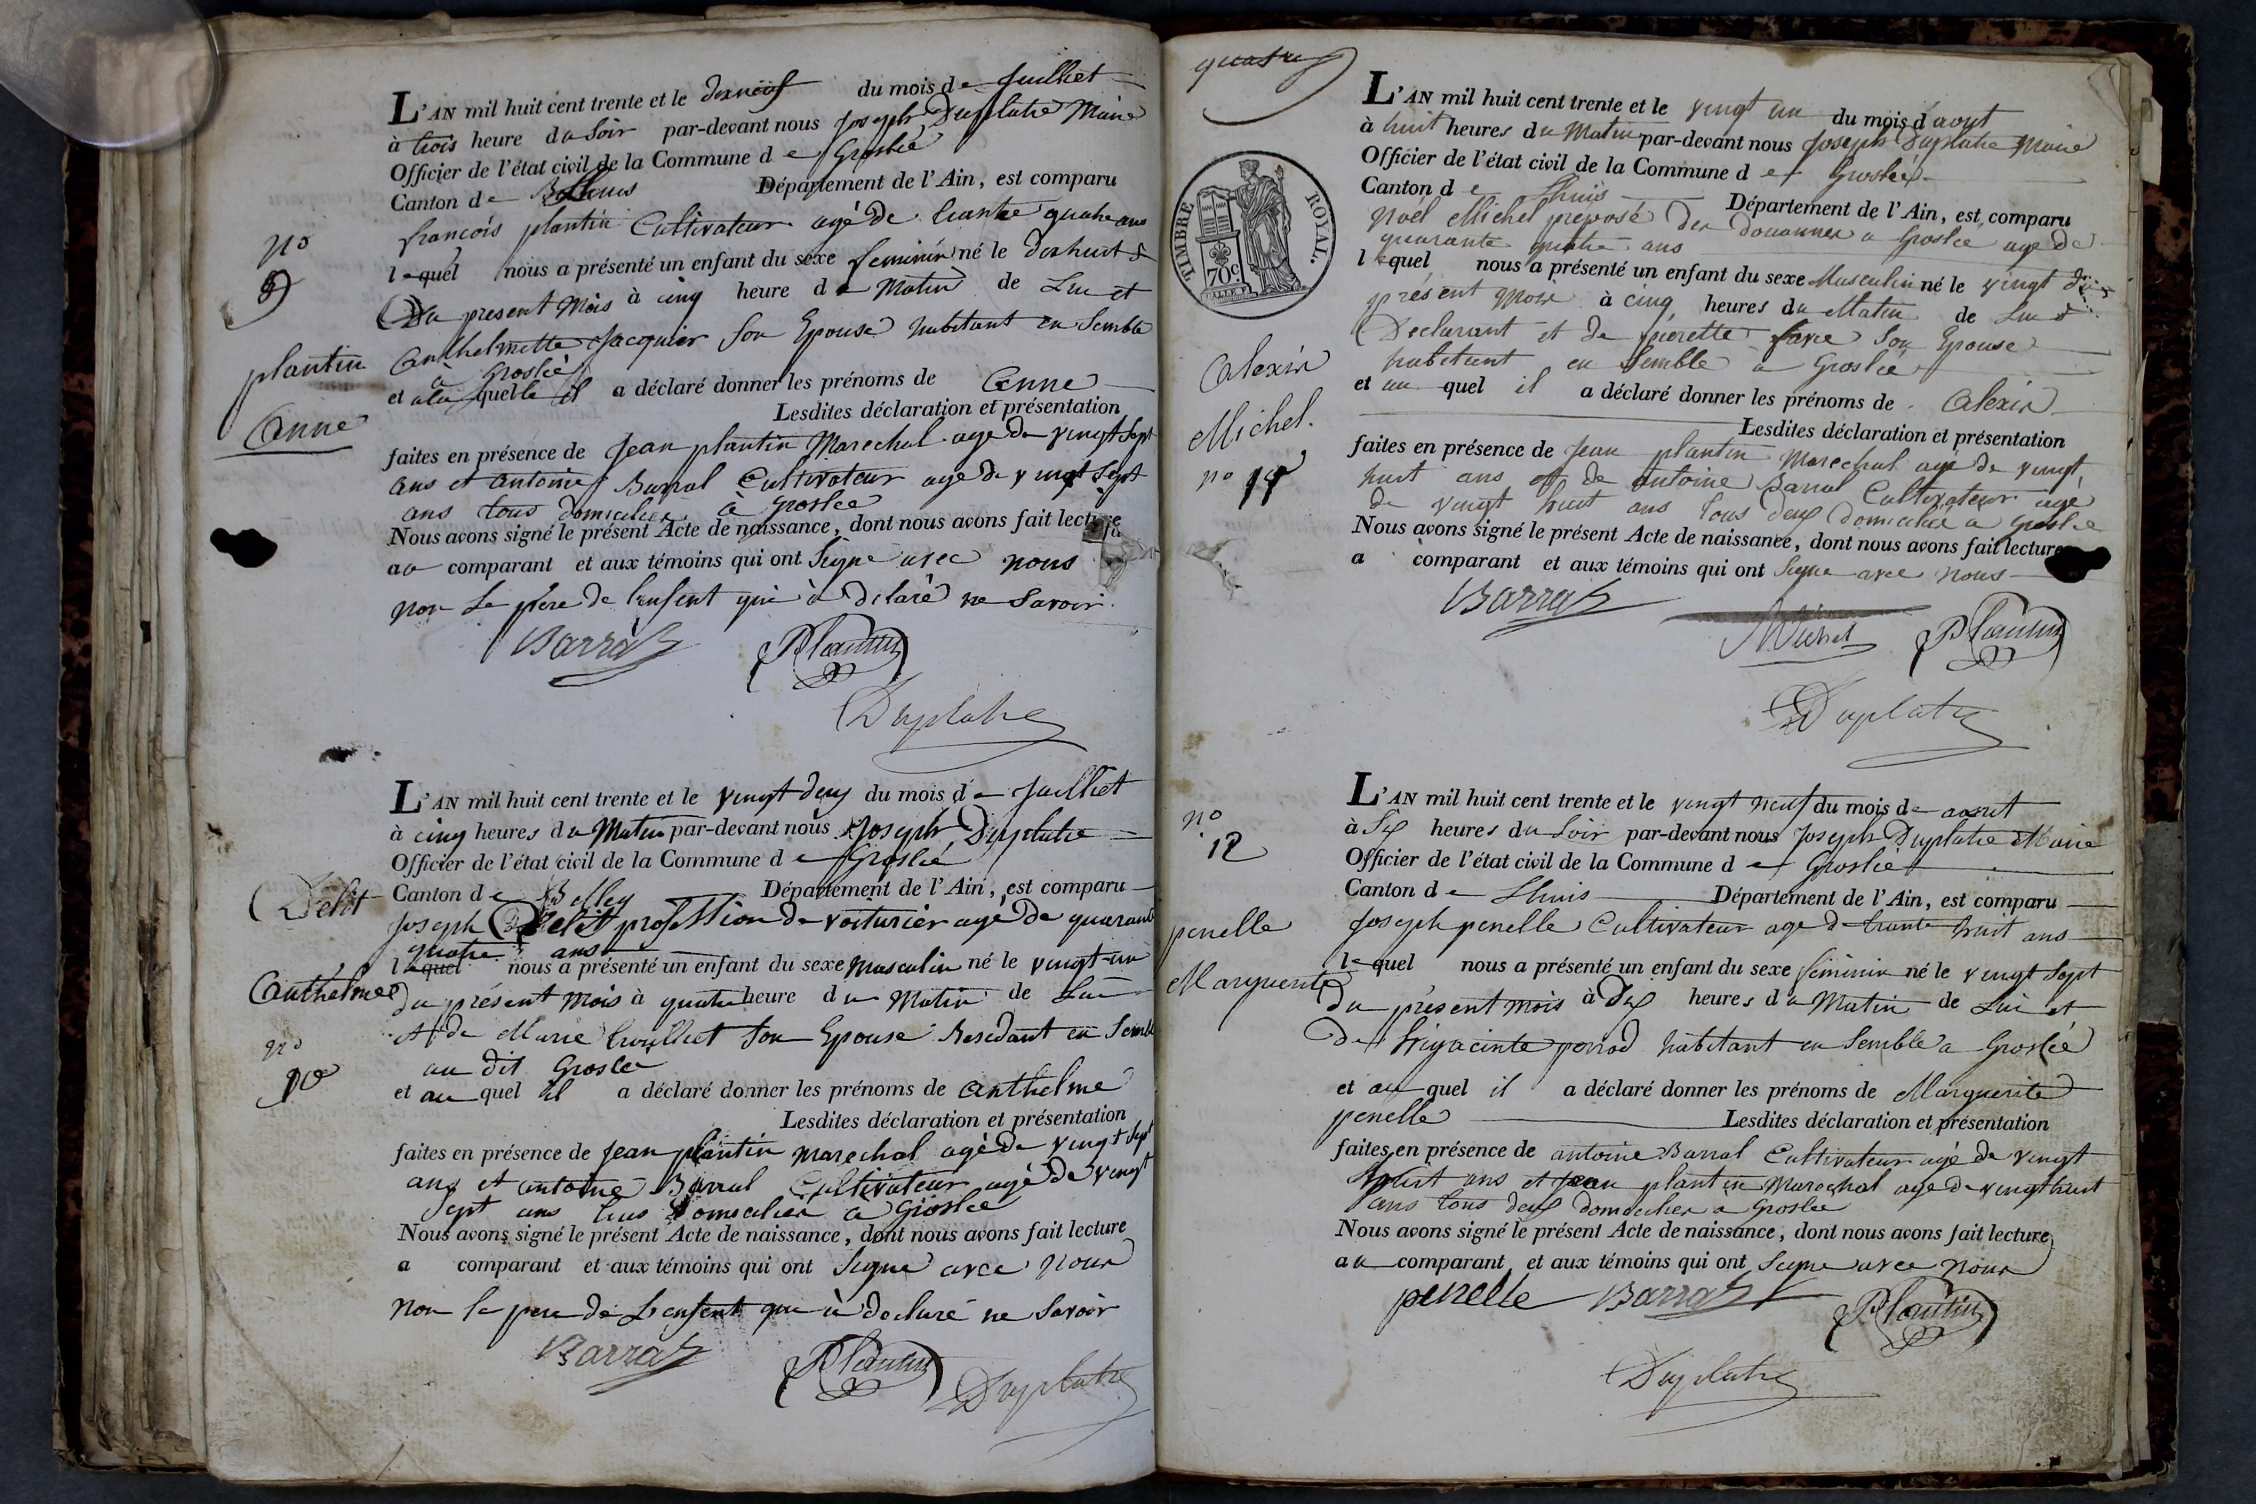 no
9
plantin
Anne
L'AN mil huit cent trente et le dixneuf du mois de Juilliet
à trois heure du Soir par-devant nous Joseph Duplatre Maire
Officier de l'état civil de la Commune de Groslée
Canton de Lhuis Département de l'Ain, est comparu
françois plantin Cultivateur agé de trante quatre ans
lequel nous a présenté un enfant du sexe feminin né le dixhuit
Du present Mois à cinq heure du Matin de Lui et
Anthelmette Jacquier Son Epouse habitant en Semble
à Groslée
et a la quelle il a déclaré donner les prénoms de Anne
Lesdites déclaration et présentation
faites en présence de Jean plantin Marechal agé de vingt Sept
ans et antoine Barral Cultivateur agé de vingt Sept
ans tous domicilier à Groslée
Nous avons signé le présent Acte de naissance, dont nous avons fait lecture
au comparant et aux témoins qui ont Signe avec nous
non Le père de l'enfent qui à déclaré ne Savoir
Barral
Plantin
Duplatre
Delit
Anthelme
no
10
L'AN mil huit cent trente et le vingt deux du mois de Juilliet
à cinq heures du Matin par-devant nous Joseph Duplatre
Officier de l'état civil de la Commune de Groslée
Canton de Belley Département de l'Ain, est comparu
Joseph Delit profession de voiturier agé de quarante
quatre ans
lequel nous a présenté un enfant du sexe Masculin né le vingt un
du présent Mois à quatre heure du Matin de Lui
et de Marie trulliet Son Epouse Residant en Semble
au dit Groslée
et au quel il a déclaré donner les prénoms de anthelme
Lesdites déclaration et présentation
faites en présence de Jean plantin marechal agé de vingt Sept
ans et antoine Barral Cultivateur agé de vingt
Sept ans tous domicilier a Groslée
Nous avons signé le présent Acte de naissance, dont nous avons fait lecture
a comparant et aux témoins qui ont Signe avec nous
non le pere de L'enfent que à declaré ne Savoir
Barral
Plantin
Duplatre
quatre
TIMBRE ROYAL.
70c.
Alexis
Michel.
no 11
L'AN mil huit cent trente et le vingt un du mois d'avout
à huit heures du Matin par-devant nous Joseph Duplatre Maire
Officier de l'état civil de la Commune de Groslée
Canton de Lhuis Département de l'Ain, est comparu
Noël Michel preposé des douannes a Groslée agé de
quarante quatre ans
lequel nous a présenté un enfant du sexe Masculin né le vingt du
présent Mois à cinq heures du Matin de Lui
Declarant et de pierette favre Son Epouse
habitant en Semble a Groslée
et au quel il a déclaré donner les prénoms de Alexis
Lesdites déclaration et présentation
faites en présence de Jean plantin Marechal agé de vingt
huit ans et de antoine Barral Cultivateur agé
de vingt huit ans tous deux domicilié a Groslée
Nous avons signé le présent Acte de naissance, dont nous avons fait lecture
a comparant et aux témoins qui ont Signe avec nous
Barral
Michel
Plantin
Duplatre
no
12
penelle
Marguerite
L'AN mil huit cent trente et le vingt neuf du mois de avout
à Six heures du Soir par-devant nous Joseph Duplatre Maire
Officier de l'état civil de la Commune de Groslée
Canton de Lhuis Département de l'Ain, est comparu
Joseph penelle Cultivateur age de trante huit ans
lequel nous a présenté un enfant du sexe féminin né le vingt Sept
du présent mois à Dix heures du Matin de Lui et
De hiyacinte perrod habitant en Semble a Groslée
et au quel il a déclaré donner les prénoms de Marguerite
penelle Lesdites déclaration et présentation
faites en présence de antoine Barral Cultivateur agé de vingt
huit ans et Jean plantin Marechal agé de vingt huit
ans tous deux domicilier a Groslée
Nous avons signé le présent Acte de naissance, dont nous avons fait lecture
au comparant et aux témoins qui ont Signe avec nous
penelle
Barral
Plantin
Duplatre